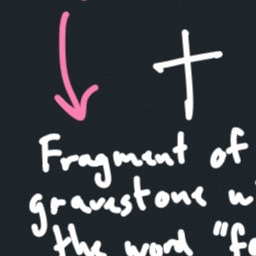 Fragment of
gravestone w
the word "fo